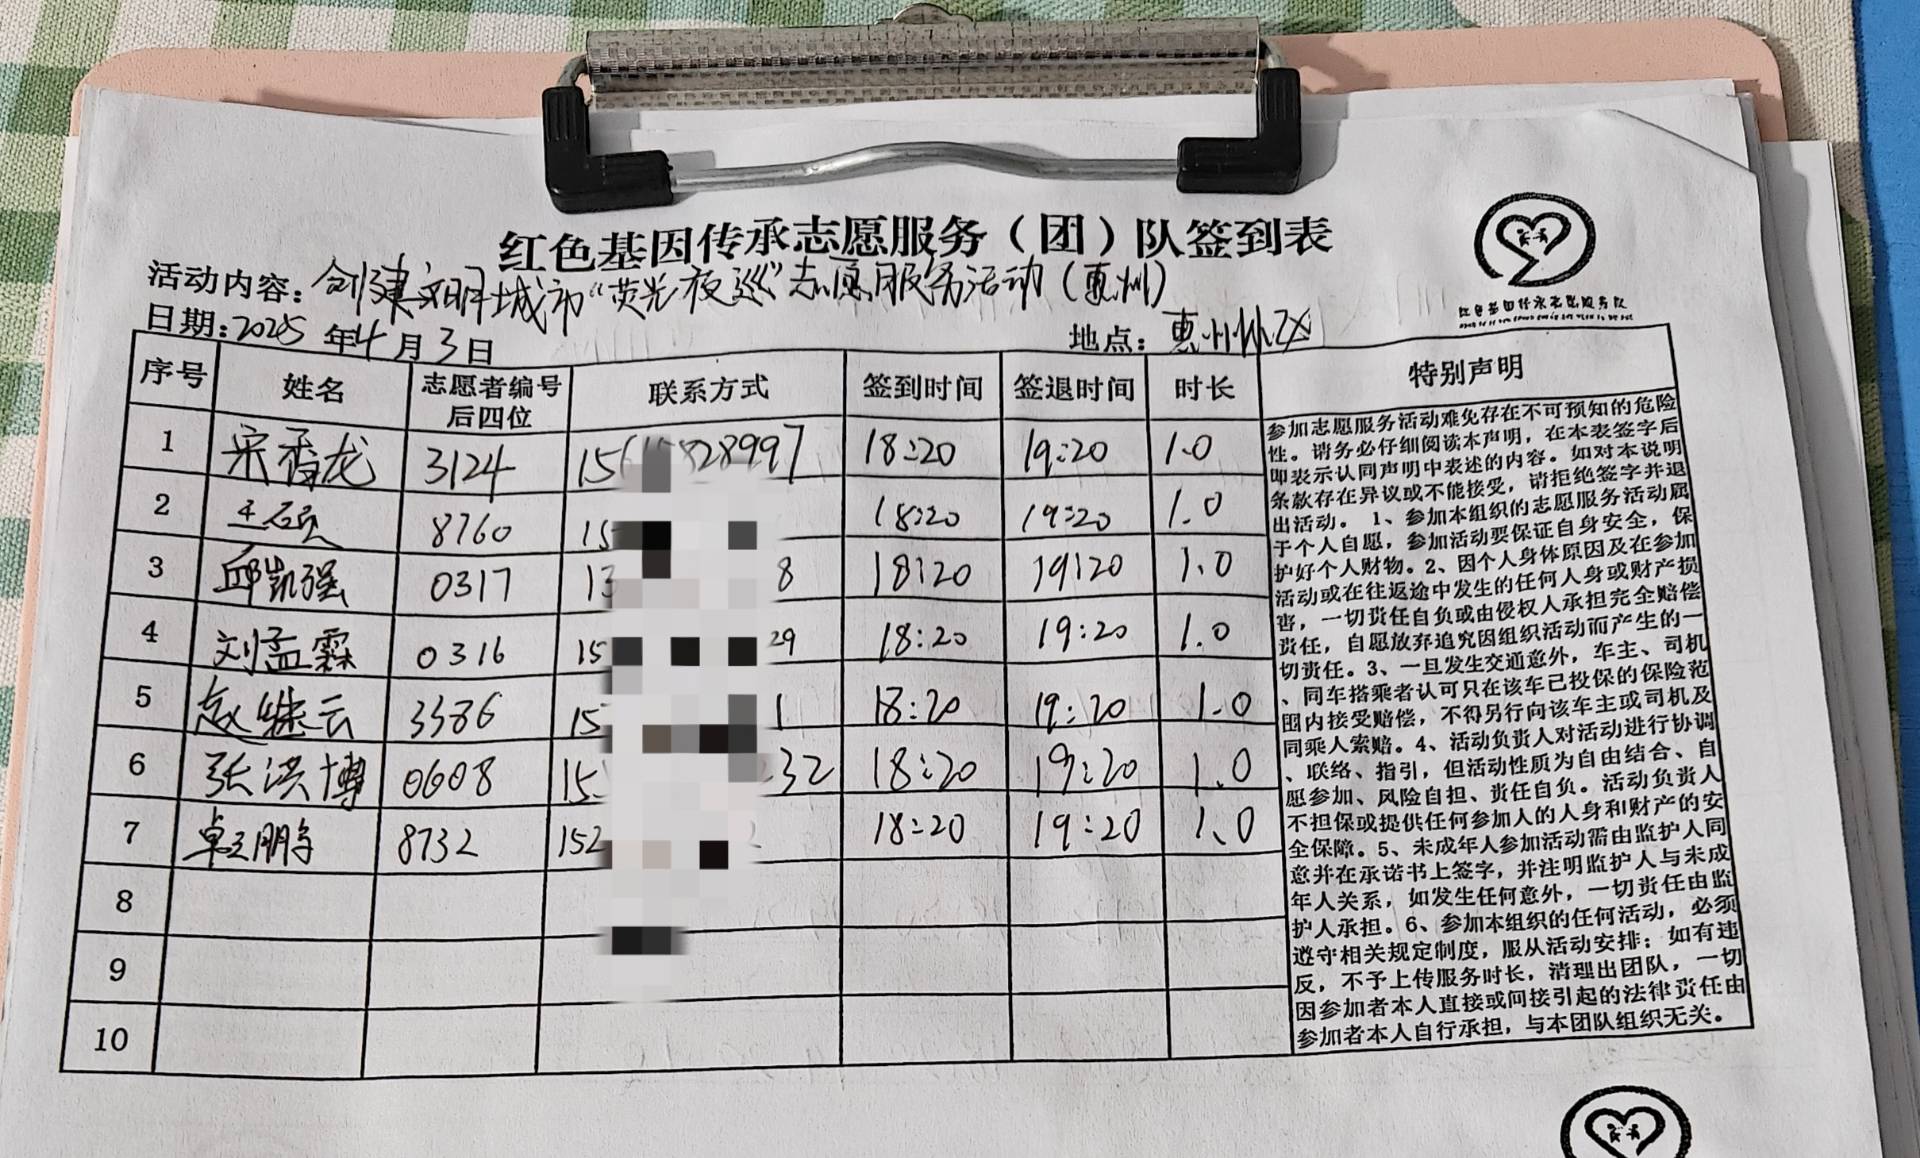 红色基因传承志愿服务（团）队签到表
活动内容：创建文明城市“荧光夜巡”志愿服务活动（惠州）
日期：2025年4月3日 地点：惠州
序号 姓名 志愿者编号后四位 联系方式 签到时间 签退时间 时长 特别声明
1 宋香龙 3124 18:20 19:20 1.0
2 王硕 8760 15 18:20 19:20 1.0
3 邱凯强 0317 13 8 18:20 19:20 1.0
4 刘孟霖 0316 15 29 18:20 19:20 1.0
5 赵继云 3386 15 1 18:20 19:20 1.0
6 张洪博 0608 15 32 18:20 19:20 1.0
7 卓立鹏 8732 152 18:20 19:20 1.0
8
9
10
参加志愿服务活动难免存在不可预知的危险
性。请务必仔细阅读本声明，在本表签字后
即表示认同声明中表述的内容。如对本说明
条款存在异议或不能接受，请拒绝签字并退
出活动。 1、参加本组织的志愿服务活动属
于个人自愿，参加活动要保证自身安全，保
护好个人财物。2、因个人身体原因及在参加
活动或在往返途中发生的任何人身或财产损
害，一切责任自负或由侵权人承担完全赔偿
责任，自愿放弃追究因组织活动而产生的一
切责任。3、一旦发生交通意外，车主、司机
、同车搭乘者认可只在该车已投保的保险范
围内接受赔偿，不得另行向该车主或司机及
同乘人索赔。4、活动负责人对活动进行协调
、联络、指引，但活动性质为自由结合、自
愿参加、风险自担、责任自负。活动负责人
不担保或提供任何参加人的人身和财产的安
全保障。5、未成年人参加活动需由监护人同
意并在承诺书上签字，并注明监护人与未成
年人关系，如发生任何意外，一切责任由监
护人承担。6、参加本组织的任何活动，必须
遵守相关规定制度，服从活动安排；如有违
反，不予上传服务时长，清理出团队，一切
因参加者本人直接或间接引起的法律责任由
参加者本人自行承担，与本团队组织无关。